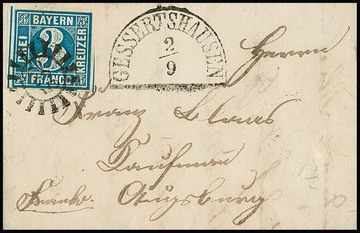 BAYERN
DREI
KREUZER
FRANCO
GESSERTSHAUSEN
2/9
Herrn
Franz Claas
Kaufmann
Franko. Augsburg